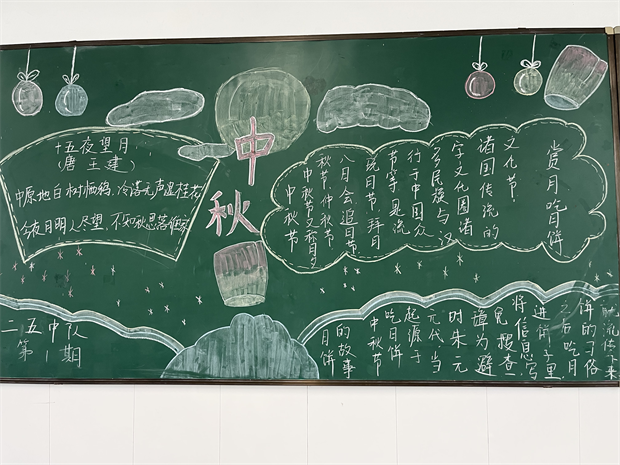 十五夜望月
(唐 王建)
中原地白树栖鸦，冷落无声温桂花
今夜月明人尽望，不知秋思落谁家
中秋
赏月吃月饼
中秋节
中秋节又称月夕
秋节、仲秋节
八月会、追月节
玩月节、拜月
节等，是流
行于中国众
多民族与汉
字文化圈诸
诸国传流的
文化节
二五中队
第1期
月饼
的故事
中秋节
吃月饼
起源于
元代当
时朱元
璋为避
免搜查，
将信息写
进饼子里，
之后吃月
饼的习俗
就流传下来